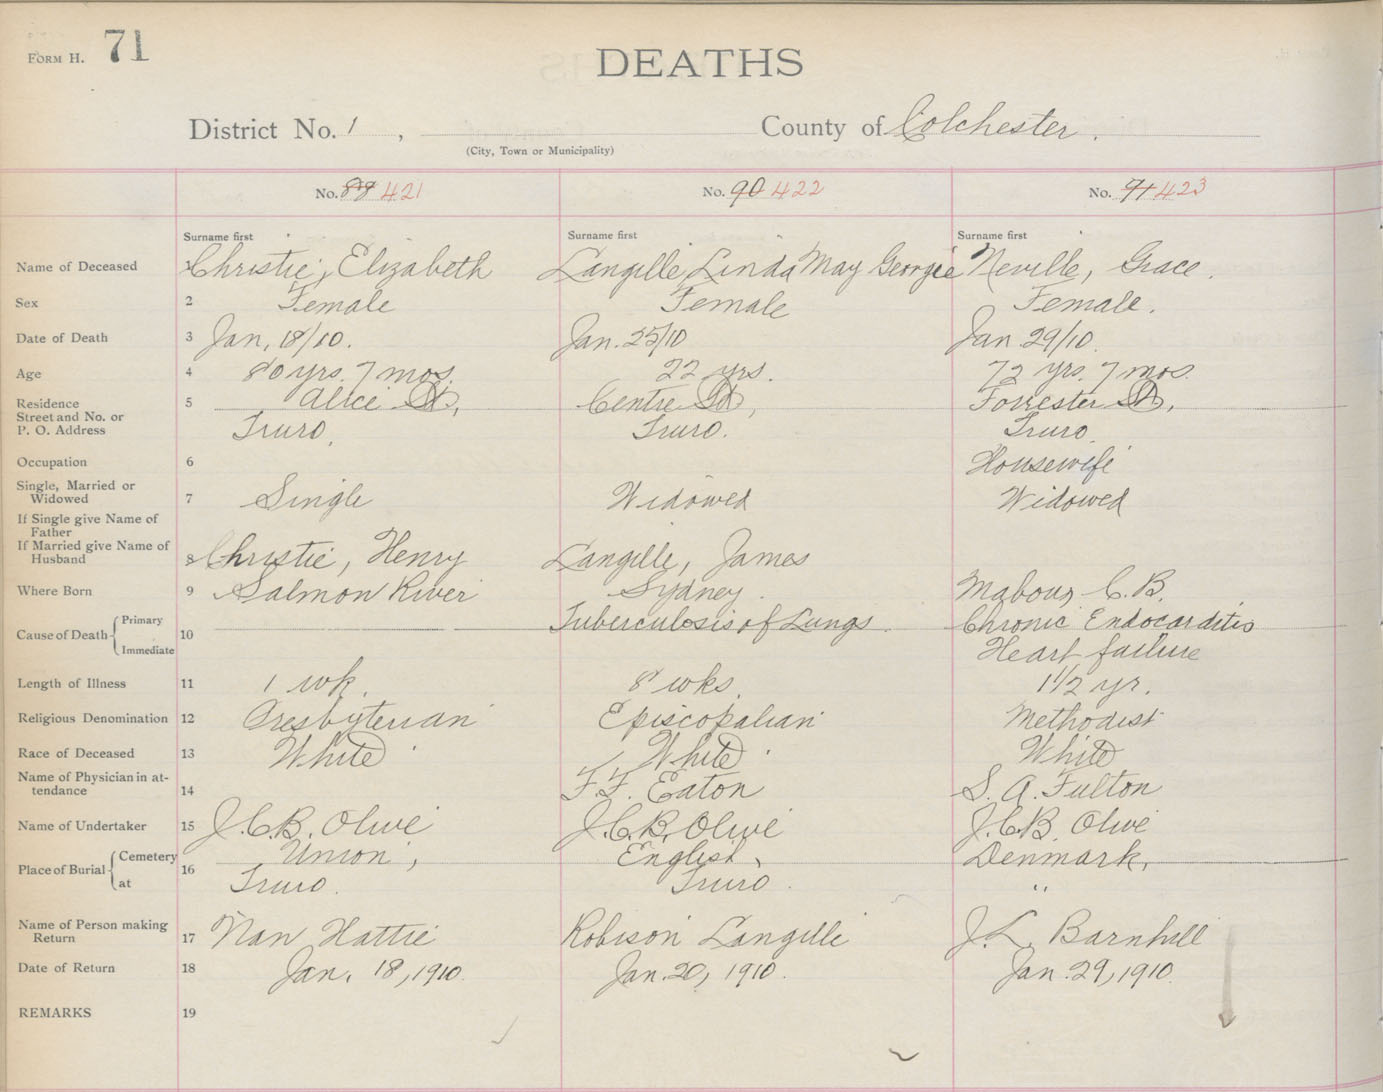 FORM H. 71
DEATHS
District No. 1 , County of Colchester.
(City, Town or Municipality)
No. 421 No. 90 422 No. 91 423
Surname first Surname first Surname first
Name of Deceased 1 Christie, Elizabeth Langille, Linda May Georgie Neville, Grace.
Sex 2 Female Female Female.
Date of Death 3 Jan, 18/10. Jan. 25/10 Jan 29/10.
Age 4 80 yrs. 7 mos. 22 yrs. 72 yrs. 7 mos.
Residence 5 Alice St, Centre St, Forrester St,
Street and No. or
P. O. Address Truro, Truro. Truro.
Occupation 6 Housewife
Single, Married or
Widowed 7 Single Widowed Widowed
If Single give Name of
Father
If Married give Name of
Husband 8 Christie, Henry Langille, James
Where Born 9 Salmon River Sydney. Mabou, C.B.
Cause of Death Primary 10 Tuberculosis of Lungs. Chronic Endocarditis
Immediate Heart failure
Length of Illness 11 1 wk. 8 wks. 1 1/2 yr.
Religious Denomination 12 Presbyterian Episcopalian Methodist
Race of Deceased 13 White White White
Name of Physician in at-
tendance 14 F. F. Eaton S. A. Fulton
Name of Undertaker 15 J.C.B. Olive J.C.B. Olive J.C.B. Olive
Place of Burial Cemetery 16 Union, English, Denmark,
at Truro. Truro. "
Name of Person making
Return 17 Nan Hattie Robison Langille J. L. Barnhill
Date of Return 18 Jan. 18, 1910. Jan. 20, 1910. Jan. 29, 1910.
REMARKS 19